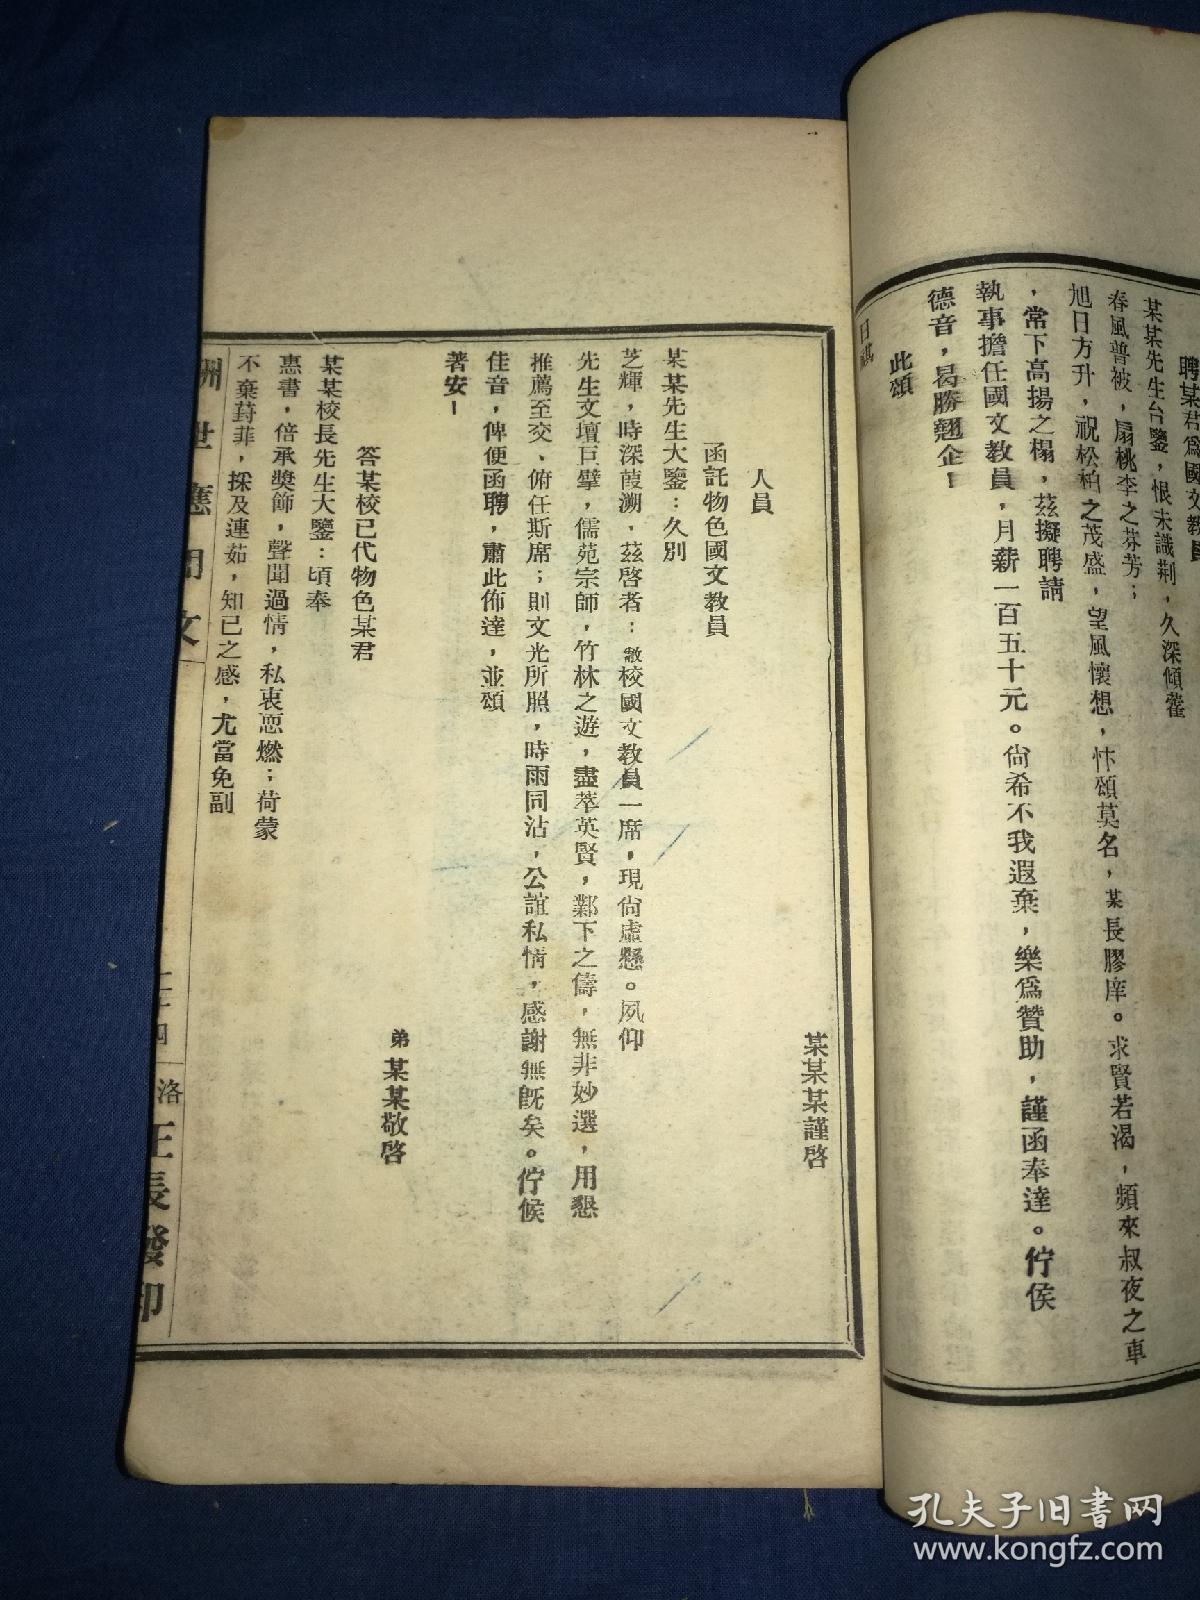 聘某君爲國文教員
某某先生台鑒，恨未識荆，久深傾藿
春風普被，扇桃李之芬芳；
旭日方升，祝松柏之茂盛，望風懷想，忭頌莫名，某長膠庠。求賢若渴，頻來叔夜之車
，常下高揚之榻，茲擬聘請
執事擔任國文教員，月薪一百五十元。尙希不我遐棄，樂爲贊助，謹函奉達。佇侯
德音，曷勝翹企！
此頌
某某某謹啓
人員
函託物色國文教員
某某先生大鑒：久別
芝輝，時深葭溯，茲啓者：敝校國文教員一席，現尙虛懸。夙仰
先生文壇巨擘，儒苑宗師，竹林之遊，盡萃英賢，鄴下之儔，無非妙選，用懇
推薦至交、俯任斯席；則文光所照，時雨同沾，公誼私情，感謝無旣矣。佇候
佳音，俾便函聘，肅此佈達，並頌
著安！
弟 某某敬啓
答某校已代物色某君
某某校長先生大鑒：頃奉
惠書，倍承獎飾，聲聞過情，私衷恧燃；荷蒙
不棄葑菲，採及連茹，知已之感，尤當免副
酬世應用文
洛
王長發印
孔夫子旧书网
www.kongfz.com